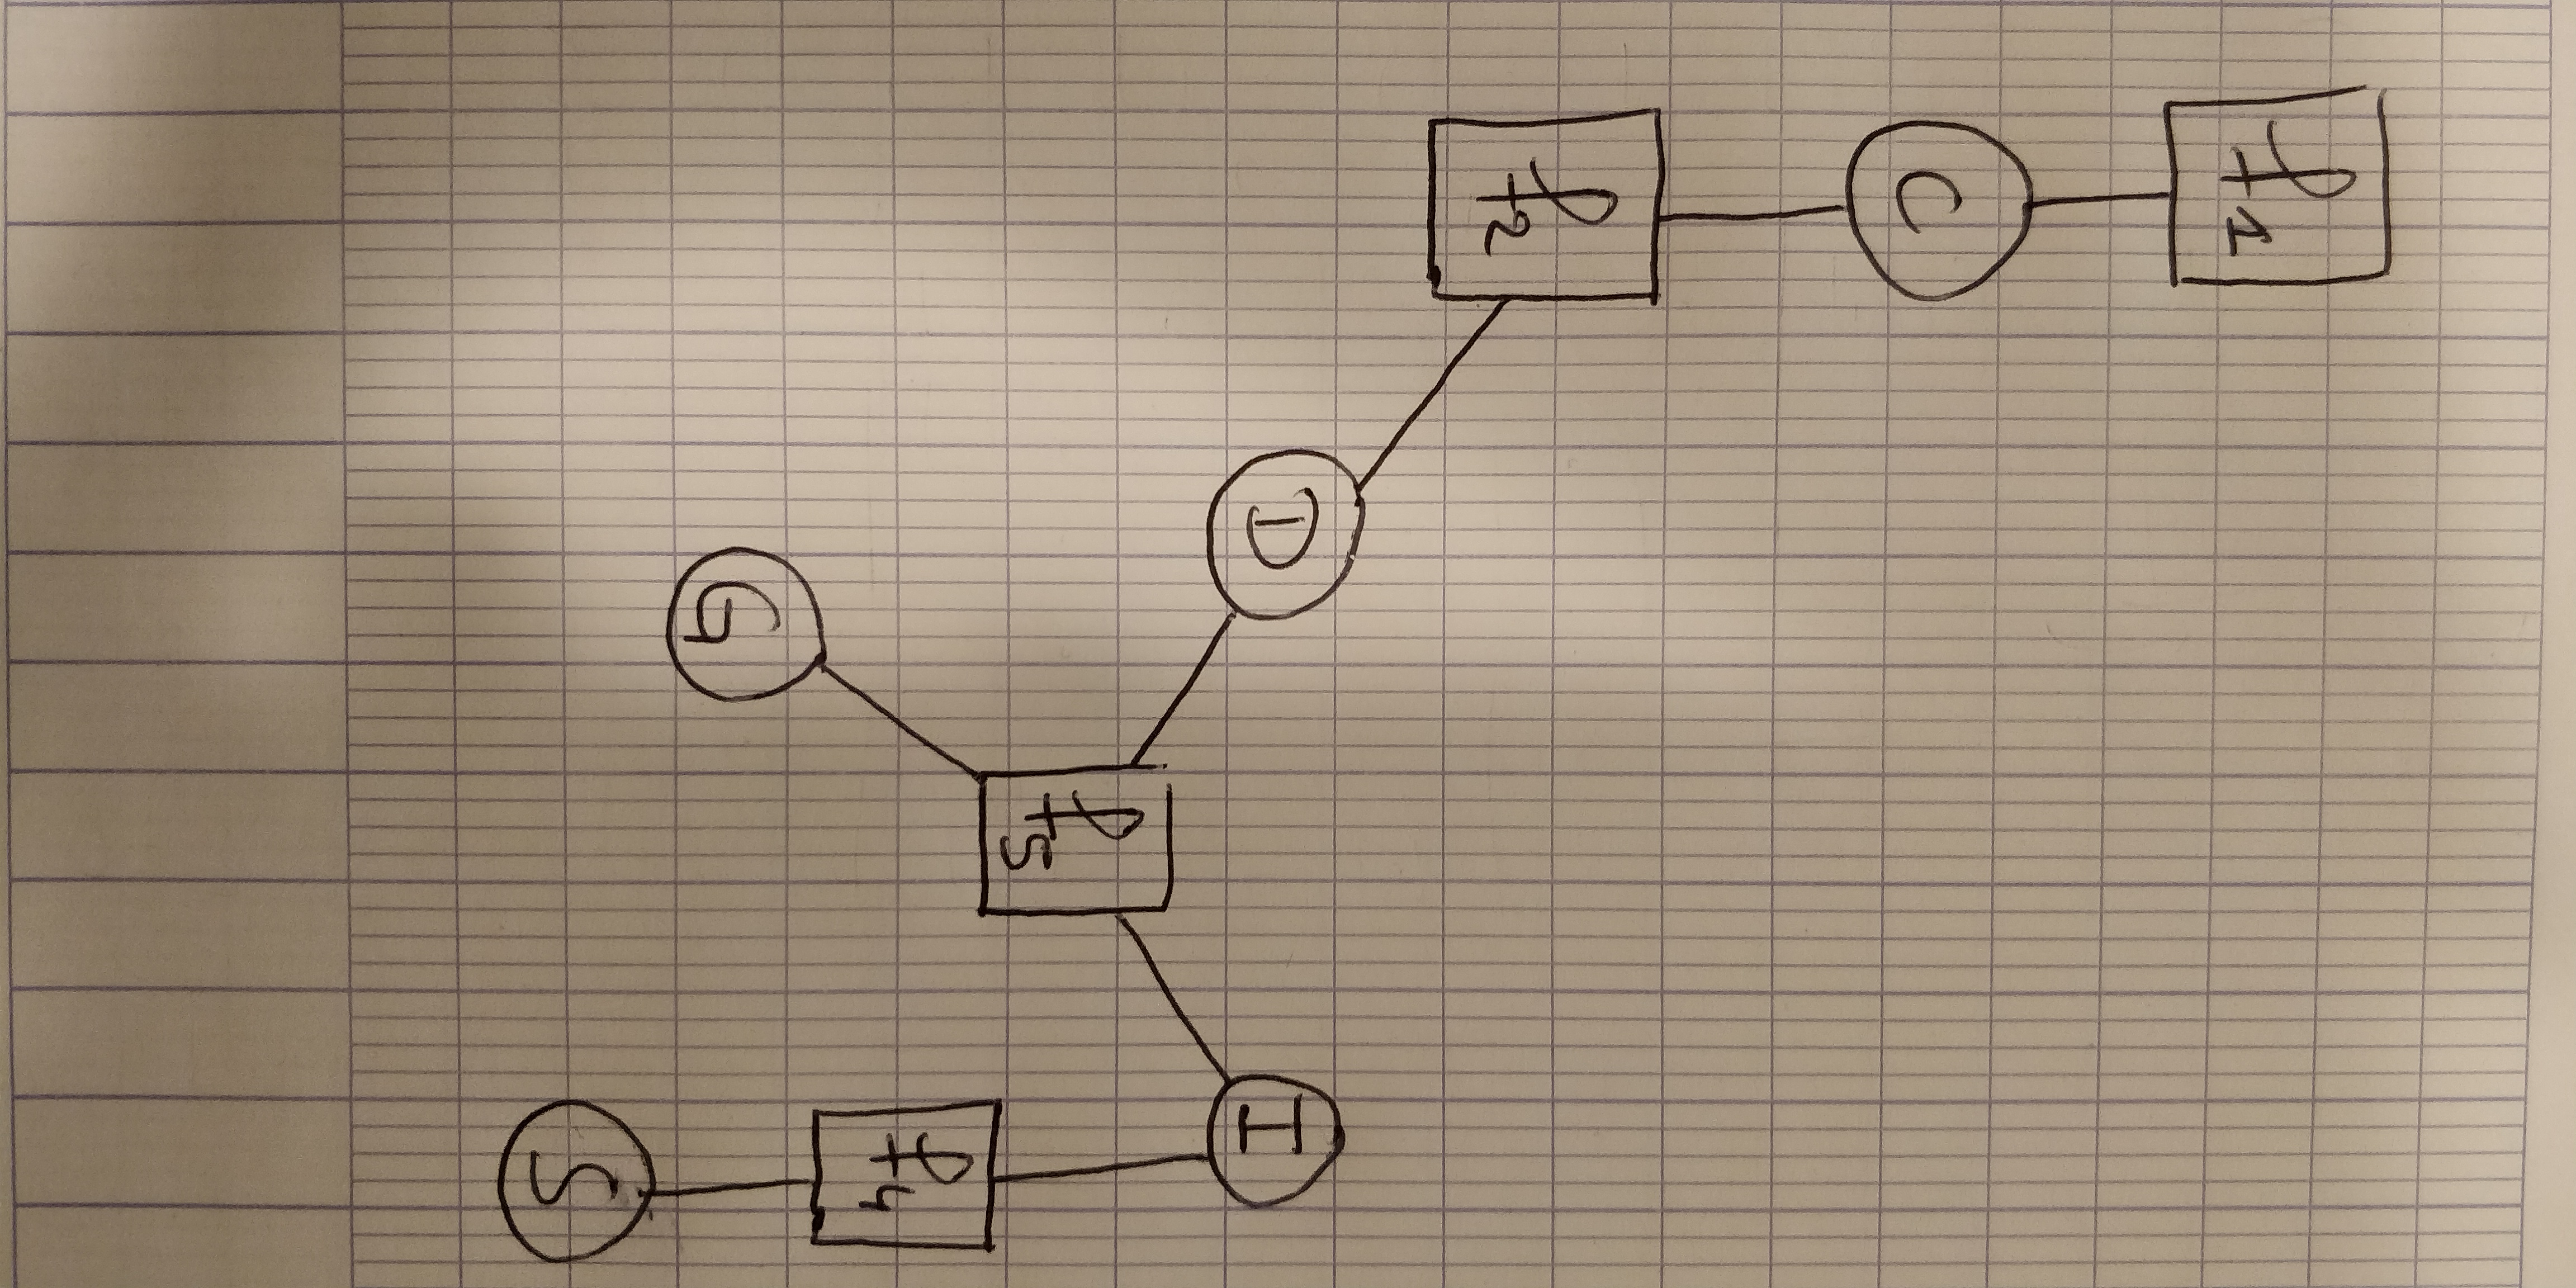 f1
C
f2
D
I
f5
f4
G
S